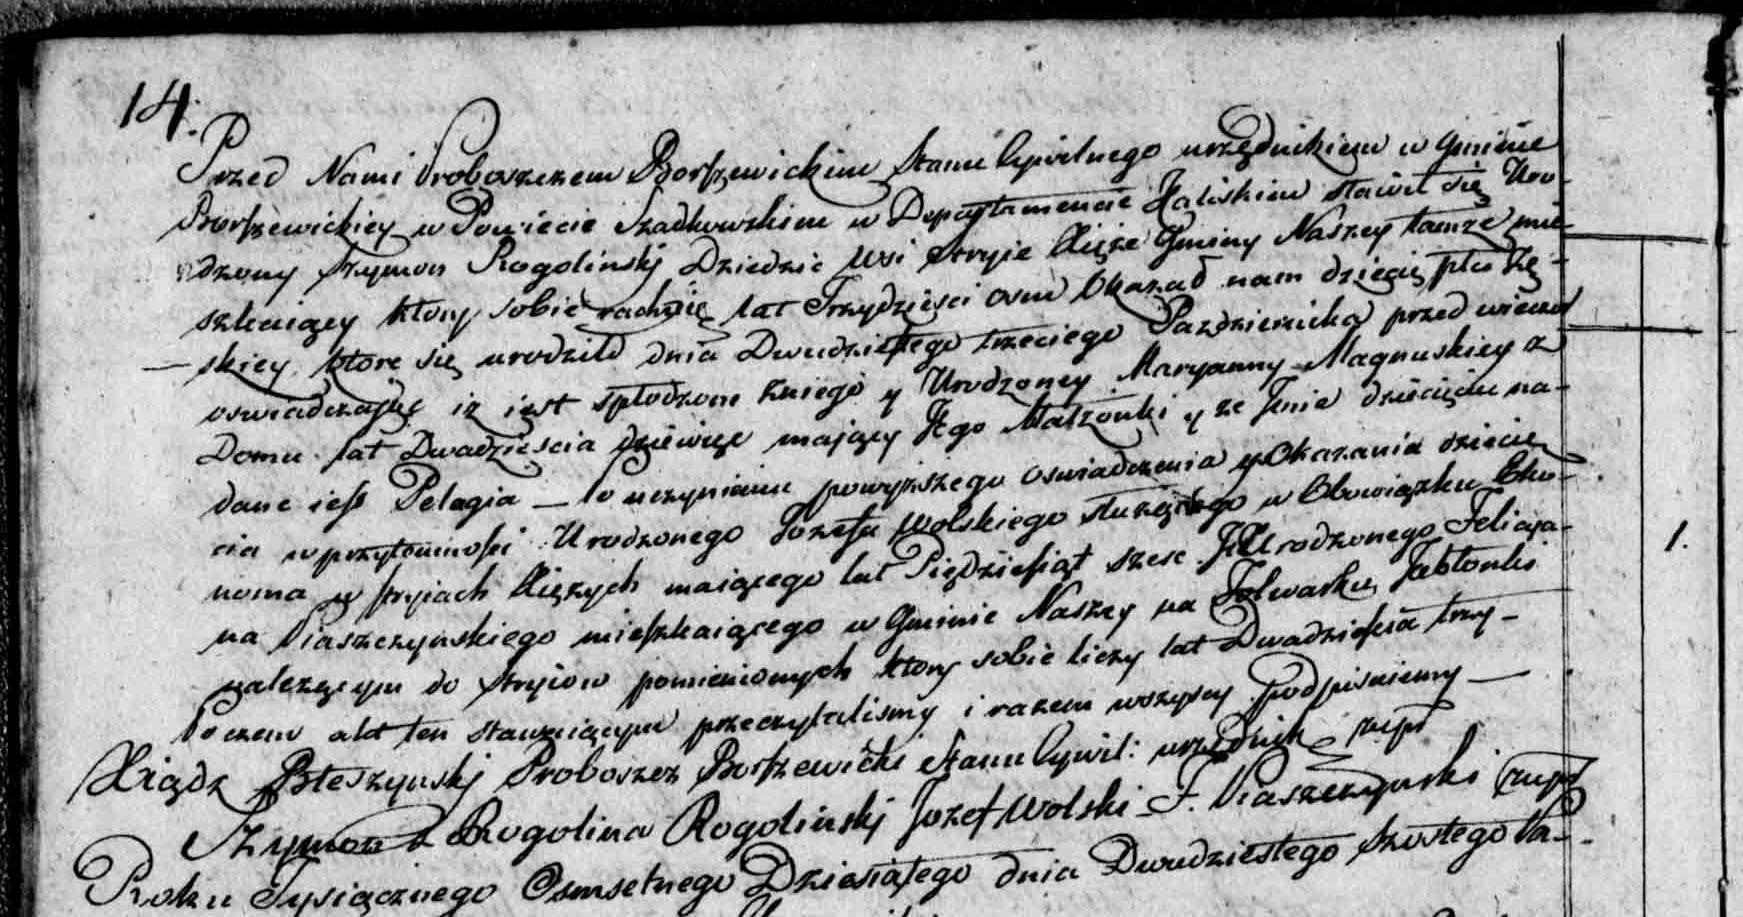 14.
Przed Nami Proboszczem Borszewickim Stanu Cywilnego urzędnikiem w Gminie
Borszewickiey w Powiecie Szadkowskim w Departamencie Kaliskim stawił się Uro-
dzony Szymon Rogolinskj Dziedzic wsi Stryie Xięże Gminy Naszey tamże mie-
szkaiący ktory sobie rachuie lat Trzydzieści osm Okazał nam dziecię płci Żę-
skiey, ktore się urodziło dnia Dwudziestego trzeciego Pazdziernika przed
oswiadczaiąc iz iest spłodzone zniego y Urodzoney Maryanny Magnuskiey z
Domu lat Dwadzieścia dziewięć maiący Jego Małzonki y ze Jmie dziecięciu na-
dane iest Pelagia — Po uczynieniu powyższego oswiadczenia y Okazania dziecię
cia w przytomności Urodzonego Jozefa Wolskiego służącego w Obowiązku Eko-
noma w Stryiach Xiężych maiącego lat Pięćdziesiąt szesc Urodzonego Felicya-
na Piaszczynskiego mieszkaiącego w Gminie Naszey na Folwarku Jabłonki
należącym do Stryiow pomienionych ktory sobie liczy lat Dwadzieścia trzy -
Poczem akt ten stawaiącym przeczytalismy i razem wszyscy podpisuiemy —
Xiądz Błeszynskj Proboszcz Borszewicki Stanu Cywil: urzędnik mpr
Szymon z Rogolina Rogolinskj Jozef Wolski F. Piaszczynski mpr
Roku Tysiącznego Osmsetnego Dziesiątego dnia Dwudziestego Szostego Pa-
1.